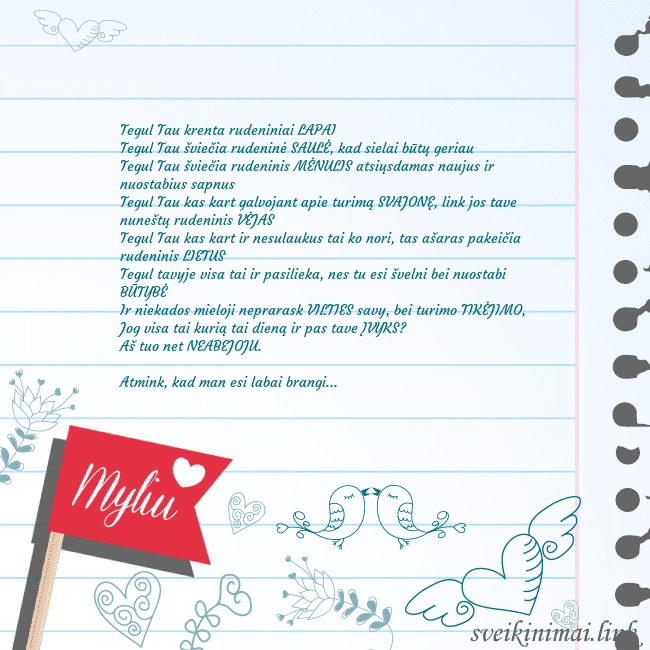 Tegul Tau krenta rudeniniai LAPAI
Tegul Tau šviečia rudeninė SAULĖ, kad sielai būtų geriau
Tegul Tau šviečia rudeninis MĖNULIS atsiųsdamas naujus ir
nuostabius sapnus
Tegul Tau kas kart galvojant apie turimą SVAJONĘ, link jos tave
nuneštų rudeninis VĖJAS
Tegul Tau kas kart ir nesulaukus tai ko nori, tas ašaras pakeičia
rudeninis LIETUS
Tegul tavyje visa tai ir pasilieka, nes tu esi švelni bei nuostabi
BŪTYBĖ
Ir niekados mieloji neprarask VILTIES savy, bei turimo TIKĖJIMO,
Jog visa tai kurią tai dieną ir pas tave ĮVYKS?
Aš tuo net NEABEJOJU.
Atmink, kad man esi labai brangi...
Myliu
sveikinimai.link